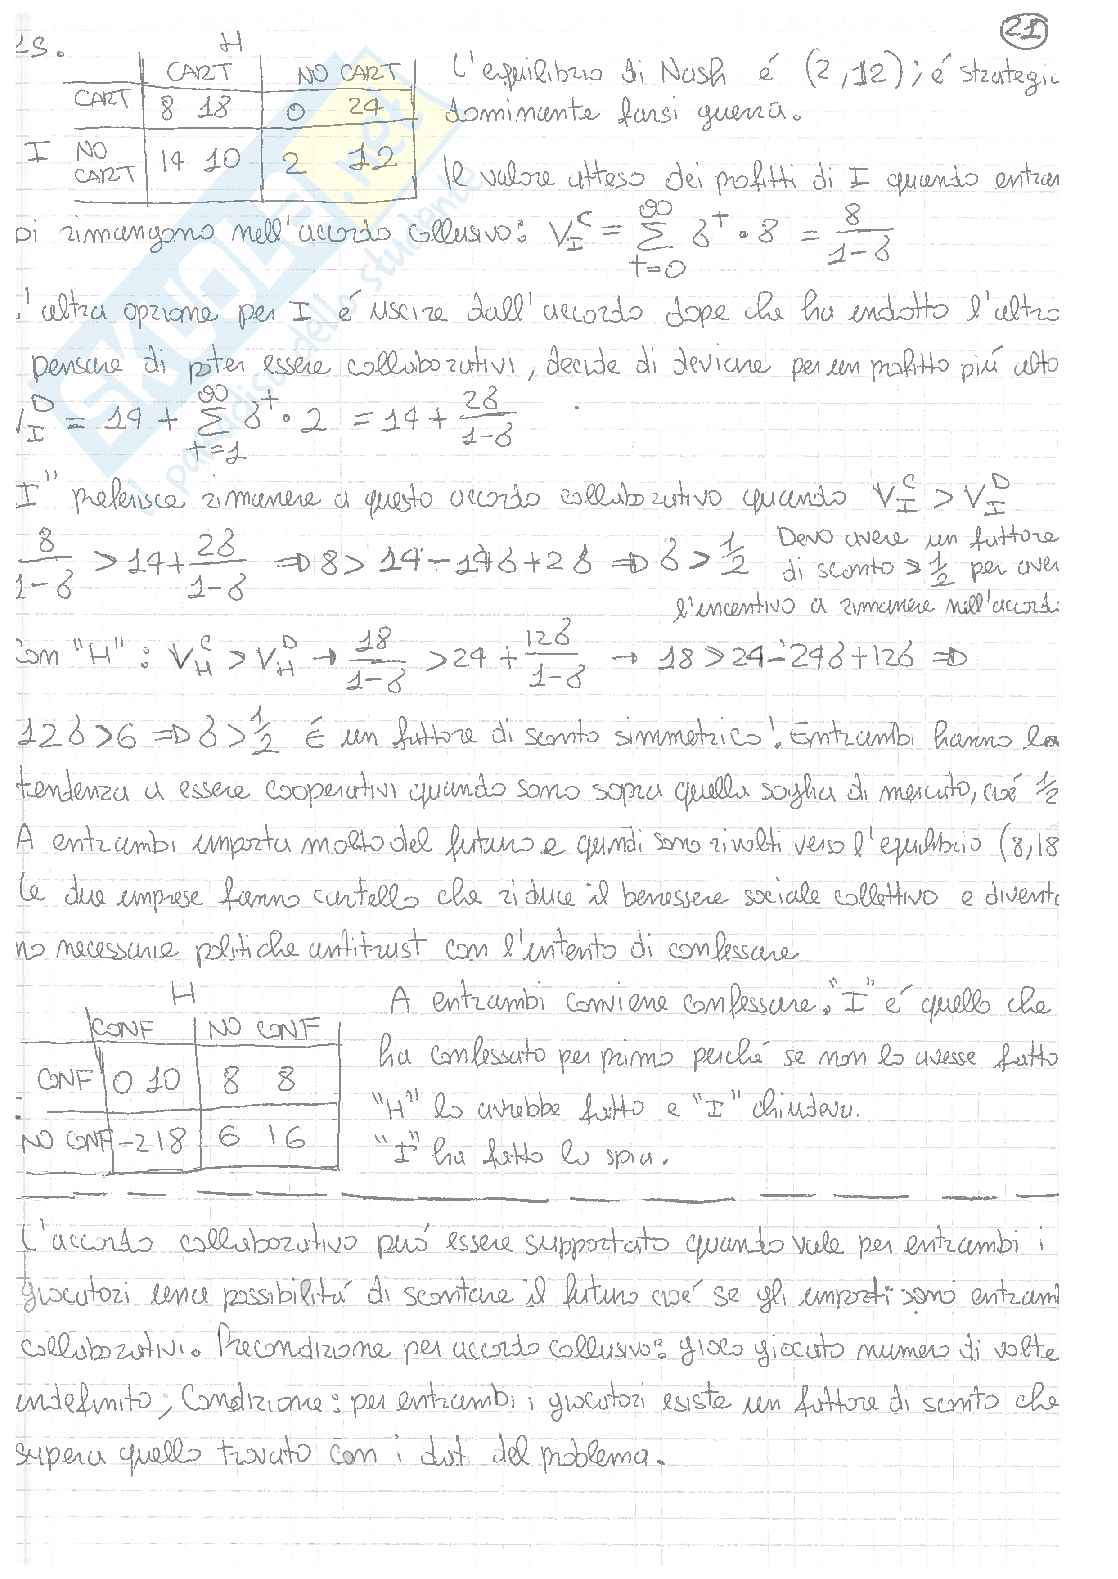 21
ES.
H
CART NO CART
CART 8 18 0 24
I NO CART 14 10 2 12
L'equilibrio di Nash é (2,12); é strategic
dominante farsi guerra.
Il valore atteso dei profitti di I quando entram
bi rimangono nell'accordo collusivo: V_I^C = ∑_{t=0}^{∞} δ^t • 8 = 8/(1-δ)
L'altra opzione per I é uscire dall'accordo dope che ha endotto l'altro
pensare di poter essere collaborativi, decide di deviare per un profitto piú alto
V_I^D = 14 + ∑_{t=1}^{∞} δ^t • 2 = 14 + 2δ/(1-δ)
I" preferisce rimanere a questo accordo collaborativo quando V_I^C > V_I^D
8/(1-δ) > 14 + 2δ/(1-δ) ⇒ 8 > 14 - 14δ + 2δ ⇒ δ > 1/2
Devo avere un fattore
di sconto > 1/2 per aver
l'incentivo a rimanere nell'accordo
Con "H": V_H^C > V_H^D → 18/(1-δ) > 24 + 12δ/(1-δ) → 18 > 24 - 24δ + 12δ ⇒
12δ > 6 ⇒ δ > 1/2 É un fattore di sconto simmetrico! Entrambi hanno la
tendenza a essere cooperativi quando sono sopra quella soglia di mercato, cioé 1/2
A entrambi importa molto del futuro e quindi sono rivolti verso l'equilibrio (8,18
Le due imprese fanno cartello che riduce il benessere sociale collettivo e diventa
no necessarie politiche antitrust con l'intento di confessare.
H
CONF NO CONF
CONF 0 10 8 8
NO CONF -2 18 6 16
A entrambi conviene confessare. "I" é quello che
ha confessato per primo perché se non lo avesse fatto
"H" lo avrebbe fatto e "I" chiudeva.
"I" ha fatto la spia.
L'accordo collaborativo puó essere supportato quando vale per entrambi i
giocatori una possibilitá di scontare il futuro cioé se gli importi sono entrambi
collaborativi. Precondizione per accordo collusivo: gioco giocato numero di volte
indefinito; Condizione: per entrambi i giocatori esiste un fattore di sconto che
supera quello trovato con i dati del problema.